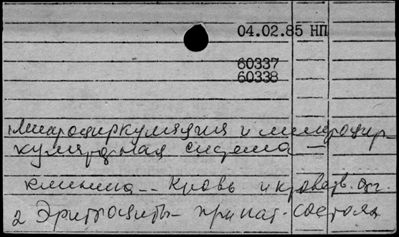 04.02.85 НП
60337
60338
Микроциркуляция и микроцир-
куляторная система —
клиника -- Кровь и кроветв. орг.
2 Эритроциты - при пат. состоя